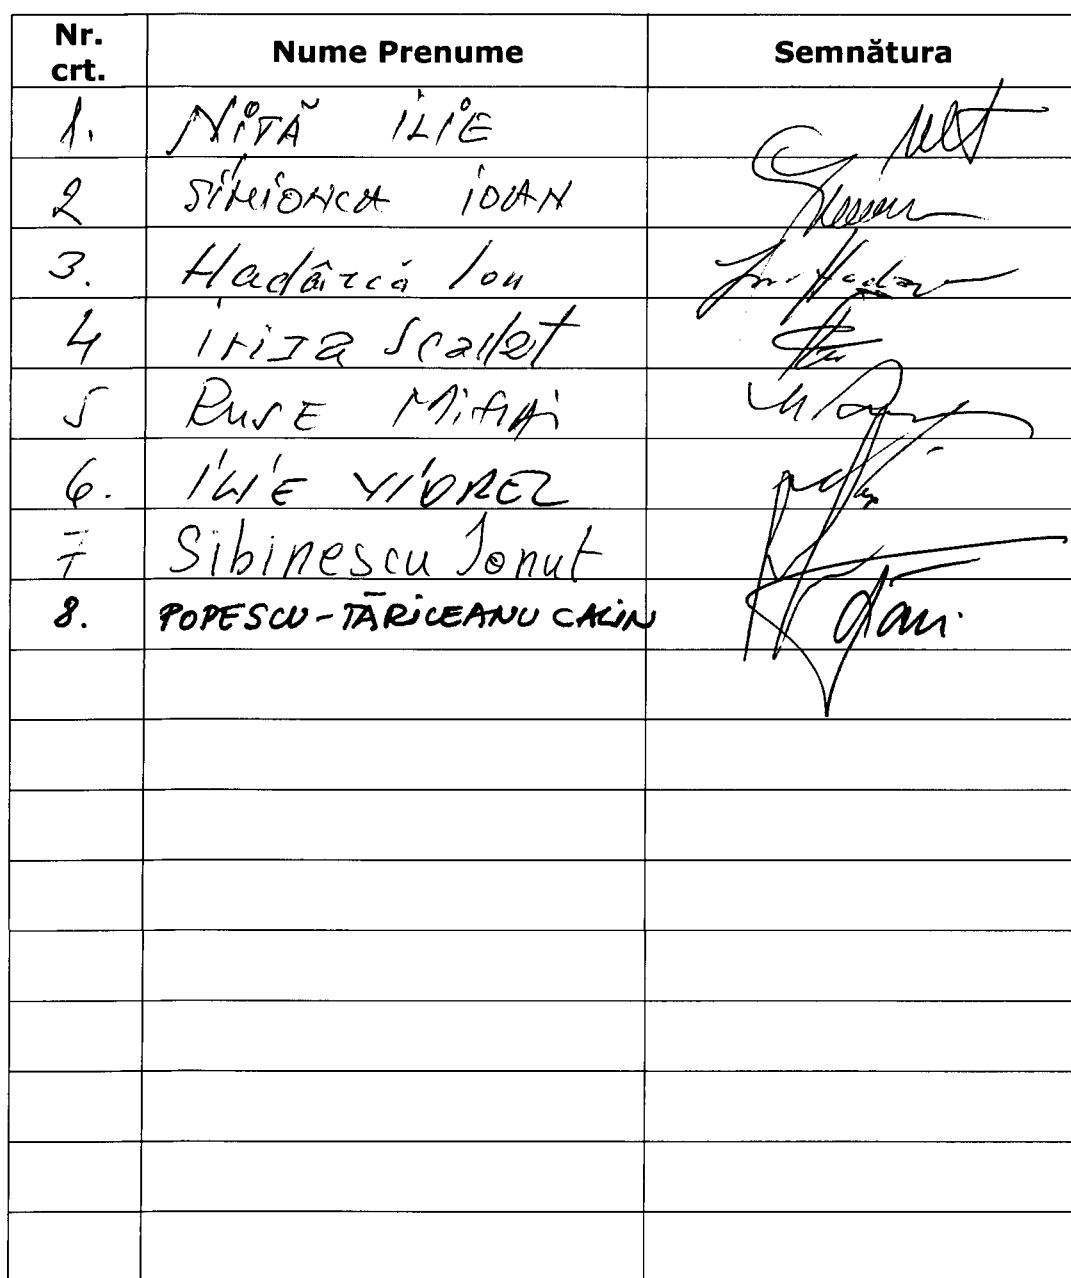 Nr. crt. Nume Prenume Semnătura
1. NIȚĂ ILIE
2 SIMIONCA IOAN
3. Hadârcă Ion
4 Iriza Scarlet
5 RUSE Mihai
6. ILIE VIOREL
7 Sibinescu Ionut
8. POPESCU-TĂRICEANU CALIN